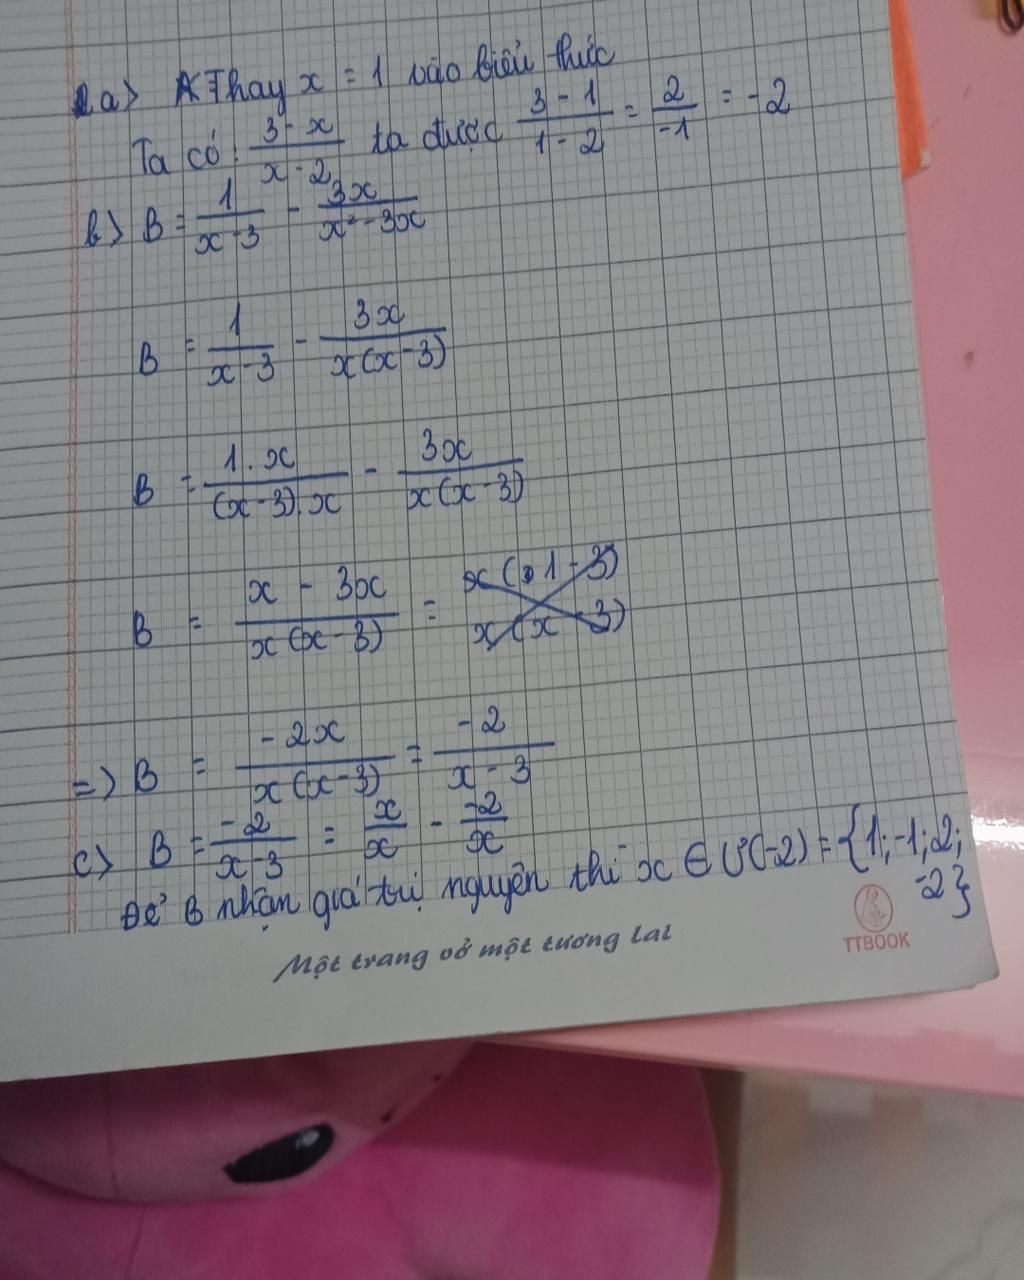 a) Thay x = 1 vào biểu thức
Ta có: \frac{3-x}{x-2} ta được \frac{3-1}{1-2} = \frac{2}{-1} = -2
b) B = \frac{1}{x-3} - \frac{3x}{x²-3x}
B = \frac{1}{x-3} - \frac{3x}{x(x-3)}
B = \frac{1.x}{(x-3).x} - \frac{3x}{x(x-3)}
B = \frac{x-3x}{x(x-3)} = \frac{x(1-3)}{x(x-3)}
=> B = \frac{-2x}{x(x-3)} = \frac{-2}{x-3}
c) B = \frac{-2}{x-3} = \frac{x}{x} - \frac{-2}{x}
Để B nhận giá trị nguyên thì x ∈ Ư(-2) = {1; -1; 2; -2}
Một trang vở một tương lai
TTBOOK